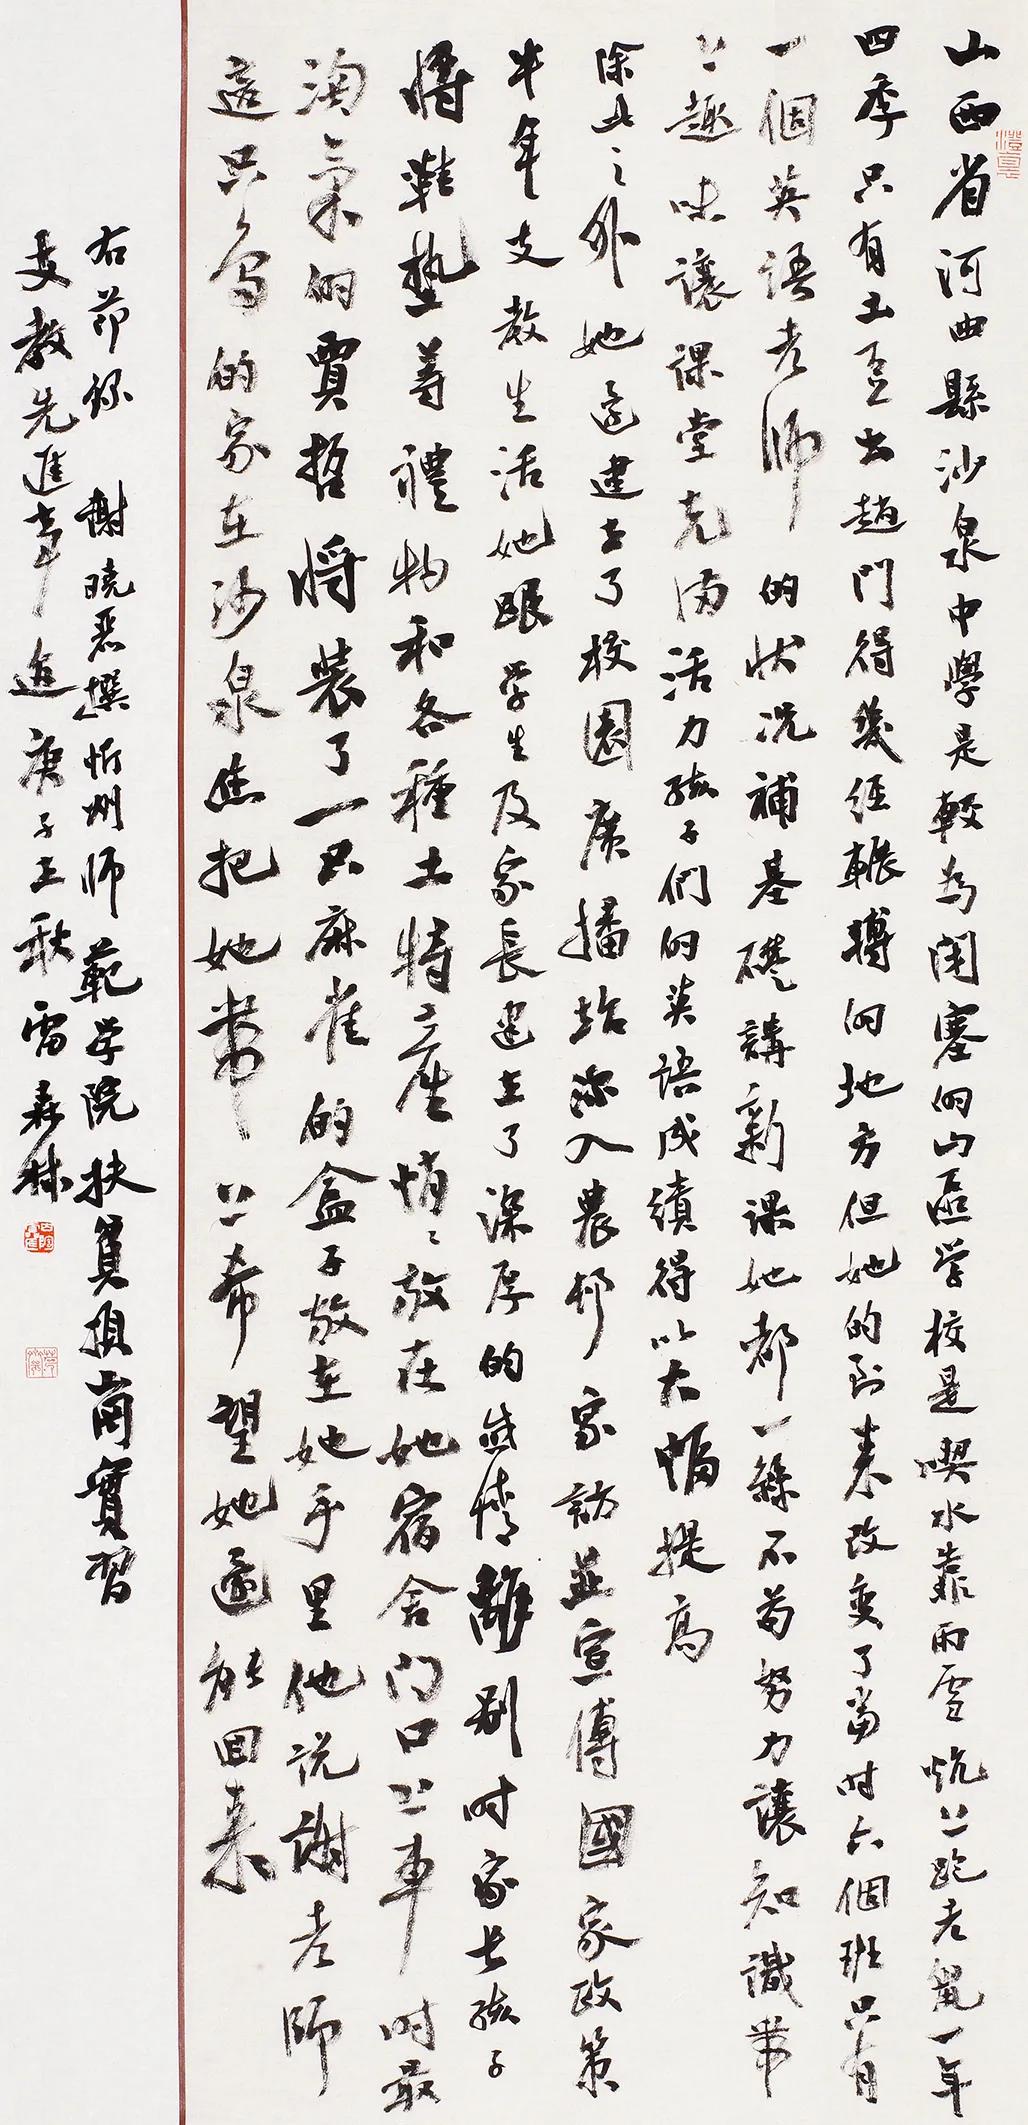 山西省河曲縣沙泉中學是較為閉塞的山區学校是喫水靠雨雪炕上跑老鼠一年
四季只有土豆出趟門得幾經輾轉的地方但她的到来改變了當时六個班只有
一個英语老师的状况補基礎講新課她都一絲不苟努力讓知識带
上趣味讓課堂充满活力孩子們的英语成績得以大幅提高
除此之外她還建立了校園廣播站深入農村家訪並宣傳國家政策
半年支教生活她跟学生及家長建立了深厚的感情離别时家长孩子
將鞋墊等禮物和各種土特産悄悄放在她宿舍门口上車时最
淘氣的賈哲將装了一只麻雀的盒子放在她手里他说謝老师
這只鸟的家在沙泉您把她带上希望她還能回来
右節録 謝晓恩撰忻州师範学院扶貧頂崗實習
支教先進事迹庚子立秋雷森林